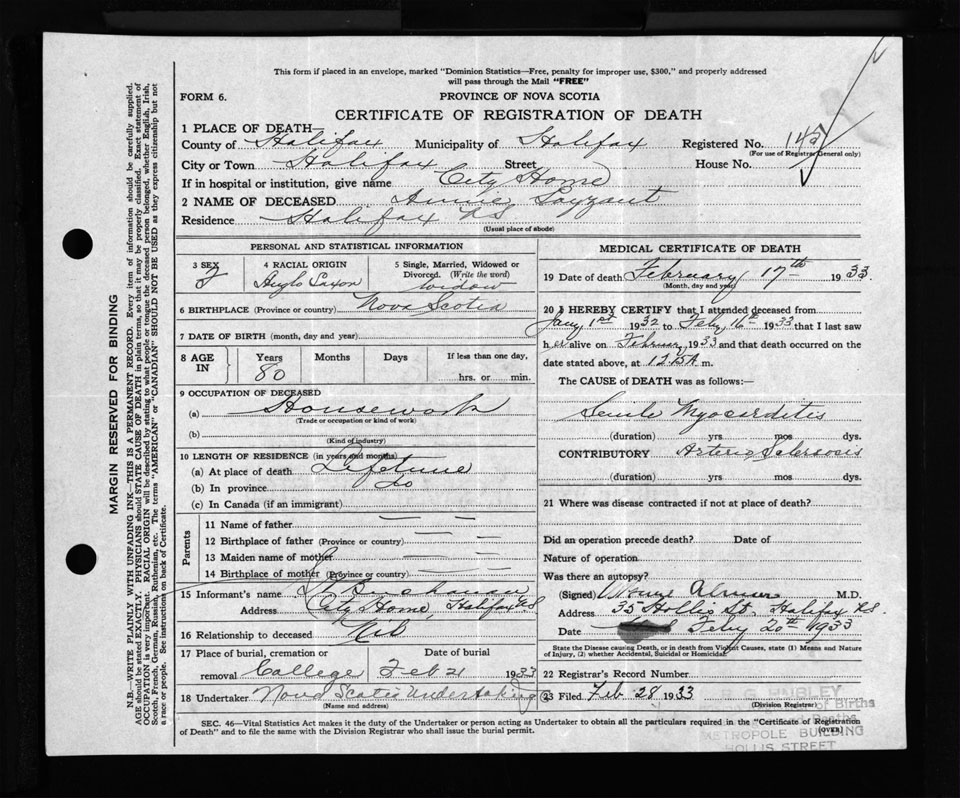 This form if placed in an envelope, marked "Dominion Statistics—Free, penalty for improper use, $300," and properly addressed
will pass through the Mail "FREE"
FORM 6.
PROVINCE OF NOVA SCOTIA
CERTIFICATE OF REGISTRATION OF DEATH
1 PLACE OF DEATH—
County of Halifax Municipality of Halifax Registered No.
(For use of Registrar General only)
City or Town Halifax Street House No.
If in hospital or institution, give name City Home
2 NAME OF DECEASED Annie Payzant
Residence Halifax N S
(Usual place of abode)
PERSONAL AND STATISTICAL INFORMATION
3 SEX 4 RACIAL ORIGIN 5 Single, Married, Widowed or
Divorced. (Write the word)
f Anglo Saxon widow
6 BIRTHPLACE (Province or country) Nova Scotia
7 DATE OF BIRTH (month, day and year)
8 AGE IN Years Months Days If less than one day,
80 hrs. or min.
9 OCCUPATION OF DECEASED
(a) Housework
(Trade or occupation or kind of work)
(b)
(Kind of industry)
10 LENGTH OF RESIDENCE (in years and months)
(a) At place of death Lifetime
(b) In province do
(c) In Canada (if an immigrant)
Parents
11 Name of father — —
12 Birthplace of father (Province or country) — —
13 Maiden name of mother — —
14 Birthplace of mother (Province or country) — —
15 Informant's name
Address City Home Halifax N.S
16 Relationship to deceased Nil
17 Place of burial, cremation or Date of burial
removal College Feb 21 1933
18 Undertaker Nova Scotia Undertaking
(Name and address)
MEDICAL CERTIFICATE OF DEATH
19 Date of death February 17th 1933.
(Month, day and year)
20 I HEREBY CERTIFY that I attended deceased from
Jany 1st 1932 to Feby 16th 1933 that I last saw
her alive on Februay 1933 and that death occurred on the
date stated above, at m.
The CAUSE of DEATH was as follows:—
Senile Myocarditis
(duration) yrs mos dys.
CONTRIBUTORY Arterio Sclerosis
(duration) yrs. mos. dys.
21 Where was disease contracted if not at place of death?
Did an operation precede death? Date of
Nature of operation
Was there an autopsy?
(Signed) M.D.
Address 35 Hollis St. Halifax N.S.
Date Feby 20th 1933
State the Disease causing Death, or in death from Violent Causes, state (1) Means and Nature
of Injury, (2) whether Accidental, Suicidal or Homicidal.
22 Registrar's Record Number
23 Filed Feb 28 1933
(Division Registrar)
of Births
Deaths
METROPOLE BUILDING
HOLLIS STREET
SEC. 46—Vital Statistics Act makes it the duty of the Undertaker or person acting as Undertaker to obtain all the particulars required in the "Certificate of Registration
of Death" and to file the same with the Division Registrar who shall issue the burial permit.
(OVER)
MARGIN RESERVED FOR BINDING
N.B.—WRITE PLAINLY WITH UNFADING INK—THIS IS A PERMANENT RECORD. Every item of information should be carefully supplied.
AGE should be stated EXACTLY. PHYSICIANS should STATE CAUSE OF DEATH in plain terms, so that it may be properly classified. Exact statement of
OCCUPATION is very important. RACIAL ORIGIN will be described by stating to what people or tongue the deceased person belonged, whether English, Irish,
Scotch, French, German, Russian, Ruthenian, etc. The terms "AMERICAN" or "CANADIAN" SHOULD NOT BE USED as they express citizenship but not
a race or people. See instructions on back of Certificate.